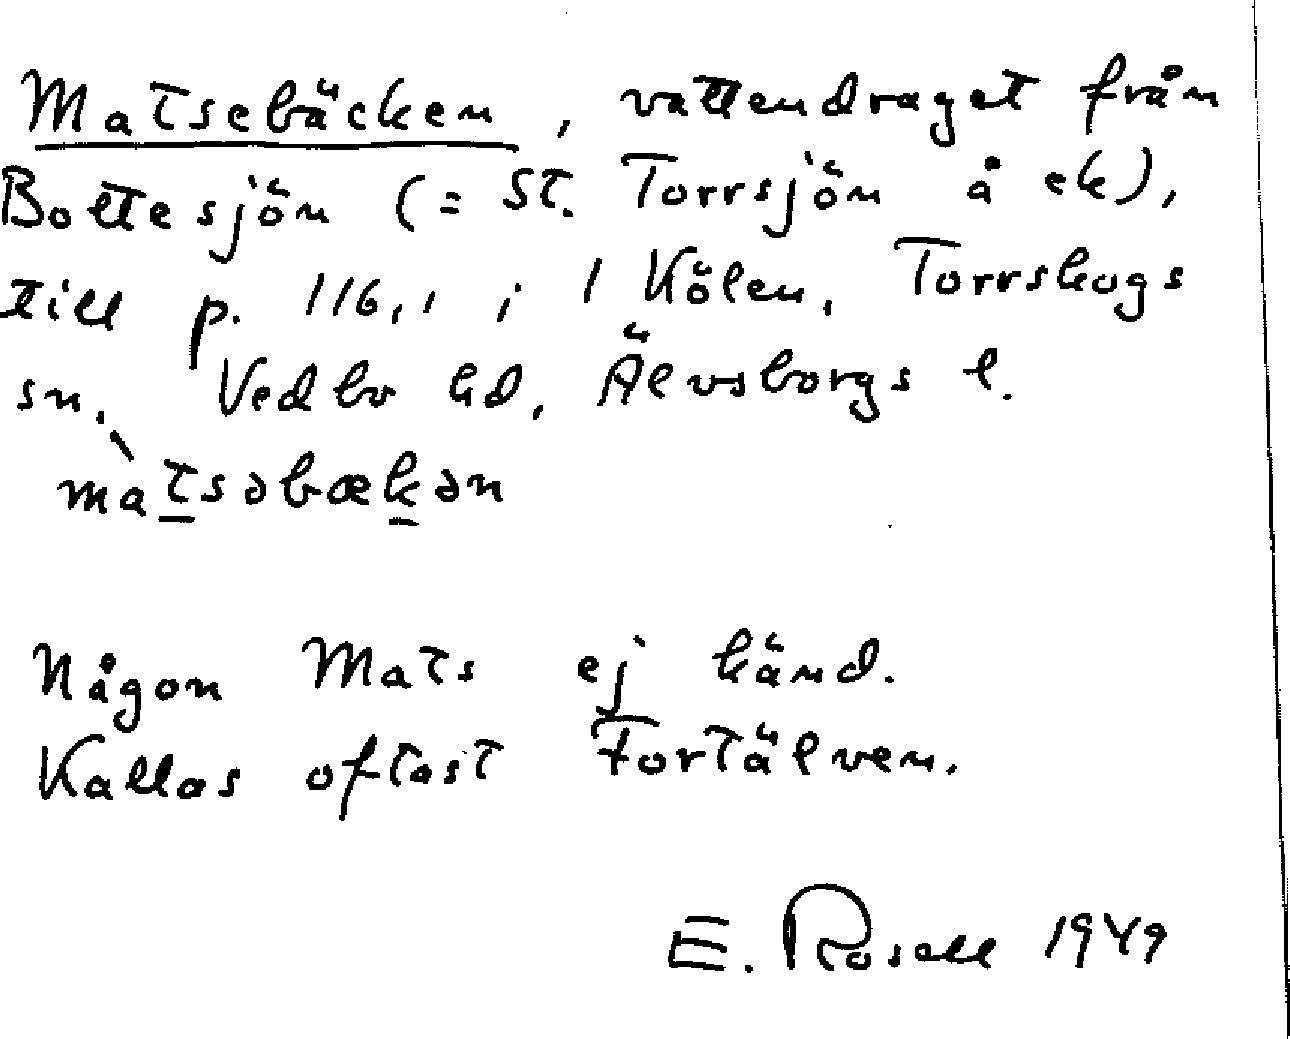 Matsebäcken, vattendraget från
Bottesjön (= St. Torrsjön å ek),
till p. 116,1 i 1 Kölen, Torrskogs
sn. Vedbo hd, Älvsborgs l.
màtsəbækən
Någon Mats ej känd.
Kallas oftast Fortälven.
E. Rosell 1949